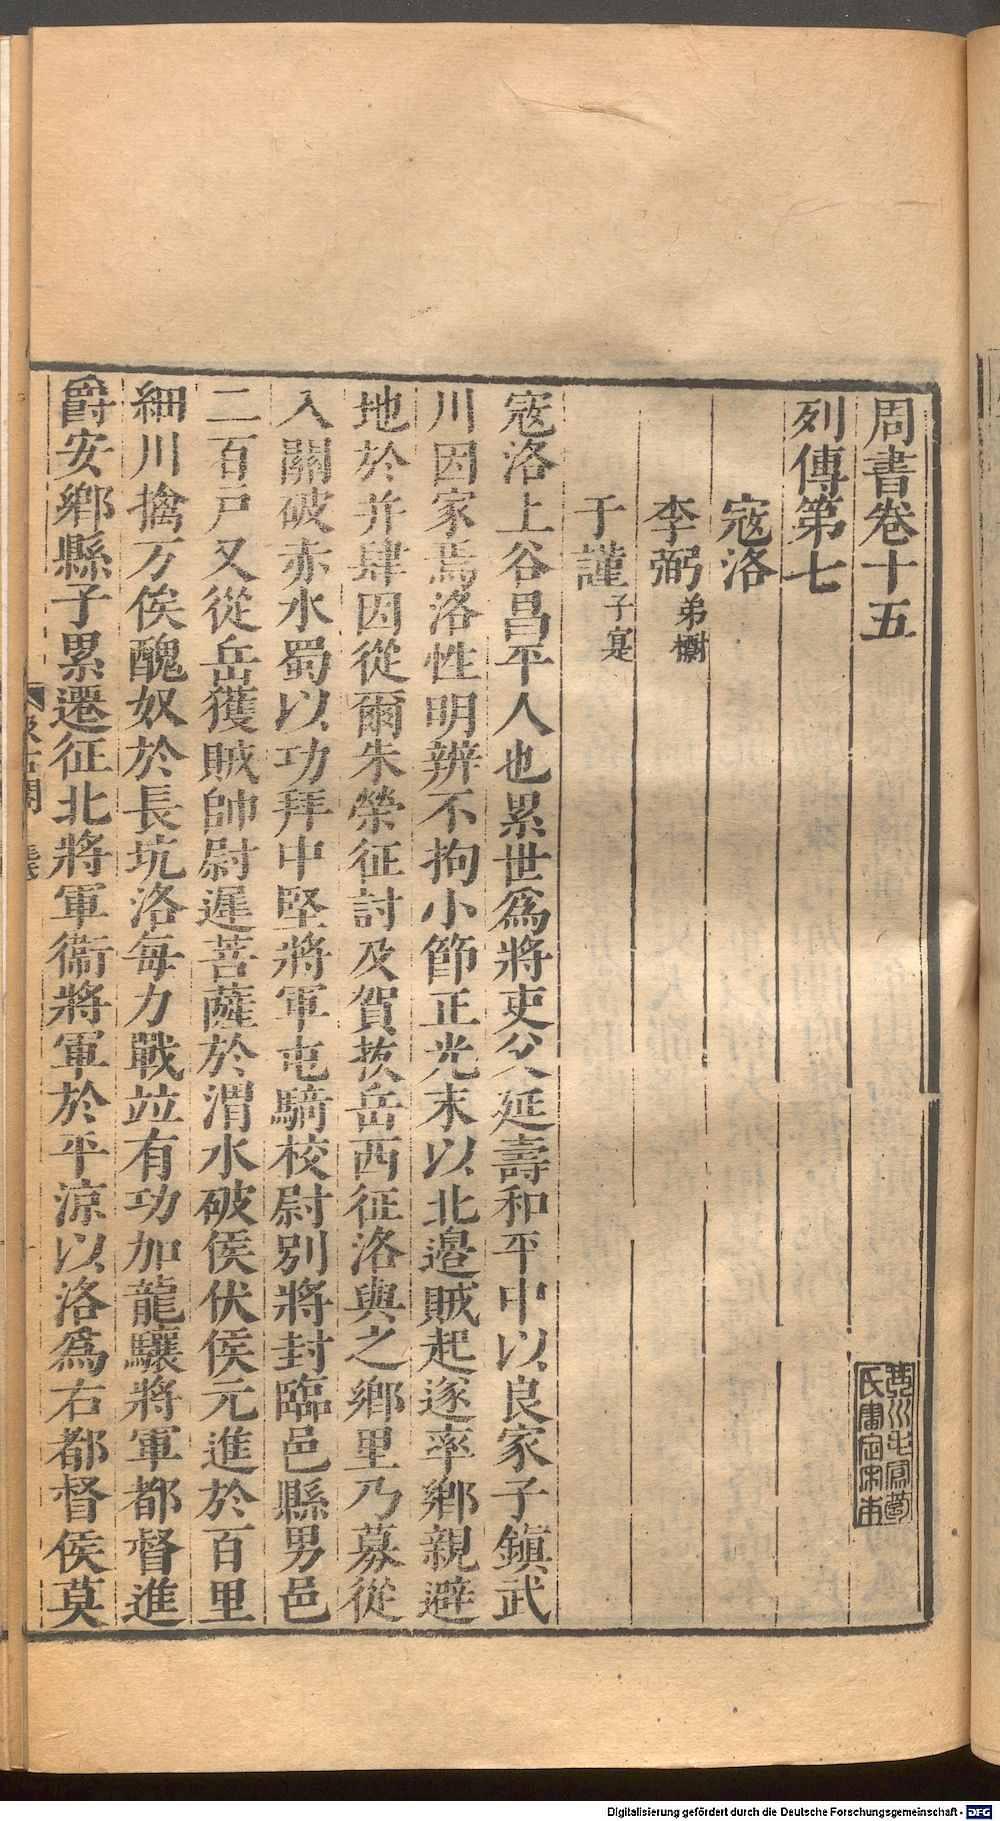 周書卷十五
列傳第七
寇洛
李弼弟檦
于謹子寔
寇洛上谷昌平人也累世爲將吏父延壽和平中以良家子鎮武
川因家焉洛性明辨不拘小節正光末以北邉賊起遂率鄉親避
地於并肆因從爾朱榮征討及賀拔岳西征洛與之鄉里乃募從
入關破赤水蜀以功拜中堅將軍屯騎校尉別將封臨邑縣男邑
二百戶又從岳獲賊帥尉遲菩薩於渭水破侯伏侯元進於百里
細川擒万俟醜奴於長坑洛每力戰竝有功加龍驤將軍都督進
爵安鄉縣子累遷征北將軍衞將軍於平涼以洛爲右都督侯莫
Digitalisierung gefördert durch die Deutsche Forschungsgemeinschaft - DFG